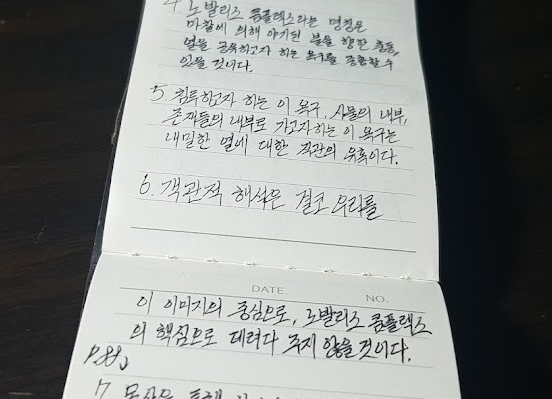 4. 노발리스 콤플렉스라는 명칭은
마찰에 의해 야기된 불을 향한 충동,
열을 공유하고자 하는 욕구를 종합할 수
있을 것이다.
5. 침투하고자 하는 이 욕구, 사물의 내부,
존재들의 내부로 가고자 하는 이 욕구는
내밀한 열에 대한 직관의 유혹이다.
6. 객관적 해석은 결코 우리를
DATE.
NO.
이 이미지의 중심으로, 노발리스 콤플렉스
의 핵심으로 데려다 주지 않을 것이다.
7.